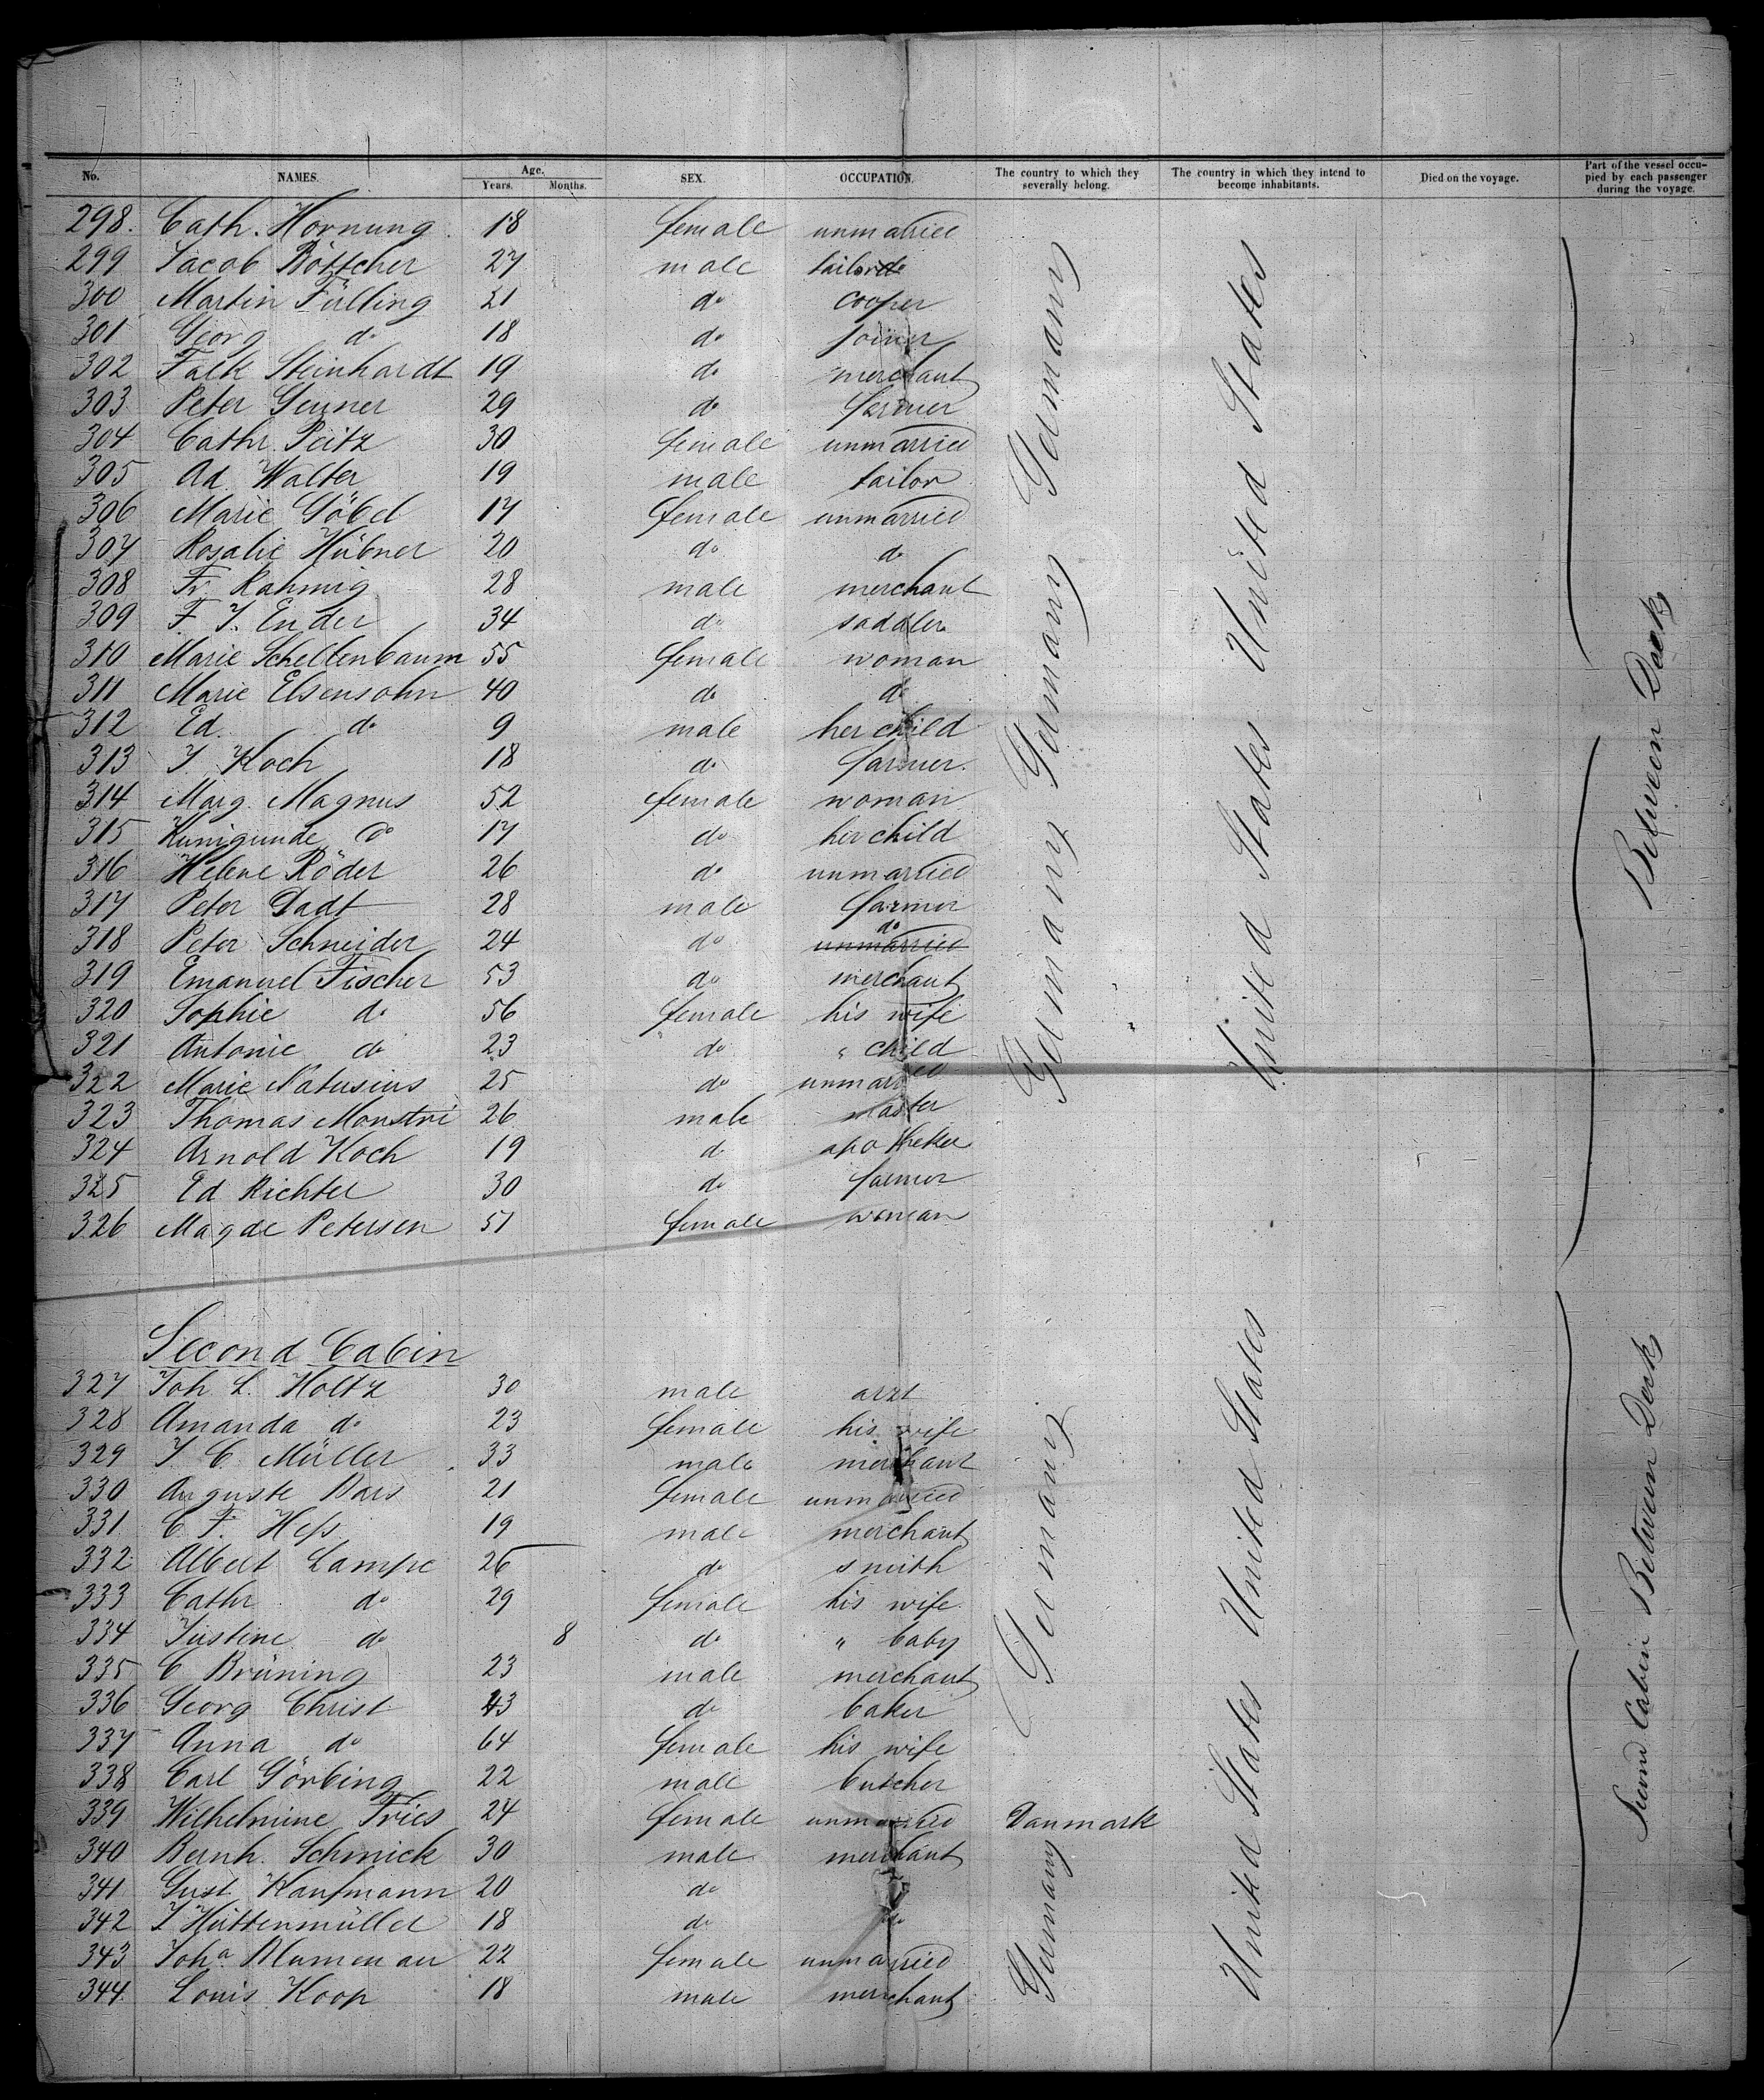 No. NAMES. Age. Years. Months. SEX. OCCUPATION. The country to which they severally belong. The country in which they intend to become inhabitants. Died on the voyage. Part of the vessel occupied by each passenger during the voyage.
298. Cath. Hornung 18 female unmarried
299 Jacob Böttcher 27 male tailor
300 Martin Fülling 21 do cooper
301 Georg do 18 do joiner
302 Falk Steinhardt 19 do merchant
303 Peter Geuner 29 do farmer
304 Cathr. Peitz 30 female unmarried
305 Ad. Walter 19 male tailor
306 Marie Göbel 17 female unmarried
307 Rosalie Hübner 20 do do
308 Fr. Rahmig 28 male merchant
309 F. J. Ender 34 do saddler
310 Marie Scheltenbaum 55 female woman
311 Marie Elsensohn 40 do do
312 Ed. do 9 male her child
313 J. Koch 18 do farmer.
314 Marg. Magnus 52 female woman
315 Kunigunde do 17 do her child
316 Helene Röder 26 do unmarried
317 Peter Dadt 28 male farmer
318 Peter Schneider 24 do do unmarried
319 Emanuel Fischer 53 do merchant
320 Sophie do 56 female his wife
321 Antonie do 23 do " child
322 Marie Natusius 25 do unmarried
323 Thomas Monstri 26 male
324 Arnold Koch 19 do apotheker
325 Ed Richter 30 do farmer
326 Magde Petersen 51 female woman
Germany Germany Germany Germany
United States United States
Between Deck
Second Cabin
327 Joh L. Holtz 30 male arzt
328 Amanda do 23 female his wife
329 J. C. Müller 33 male merchant
330 Auguste Bars 21 female unmarried
331 C. F. Heß 19 male merchant
332 Albert Lampe 26 do smith
333 Cathr do 29 female his wife
334 Justine do 8 do " baby
335 C Brüning 23 male merchant
336 Georg Christ 43 do baker
337 Anna do 64 female his wife
338 Carl Görbing 22 male butcher
339 Wilhelmine Fries 24 female unmarried Danmark
340 Bernh. Schmick 30 male merchant
341 Gust Kaufmann 20 do
342 J Hüttenmüller 18 do do
343 Joha Blumenau 22 female unmarried
344 Louis Koop 18 male merchant
Germany Germany
United States United States
Second Cabin Between Deck